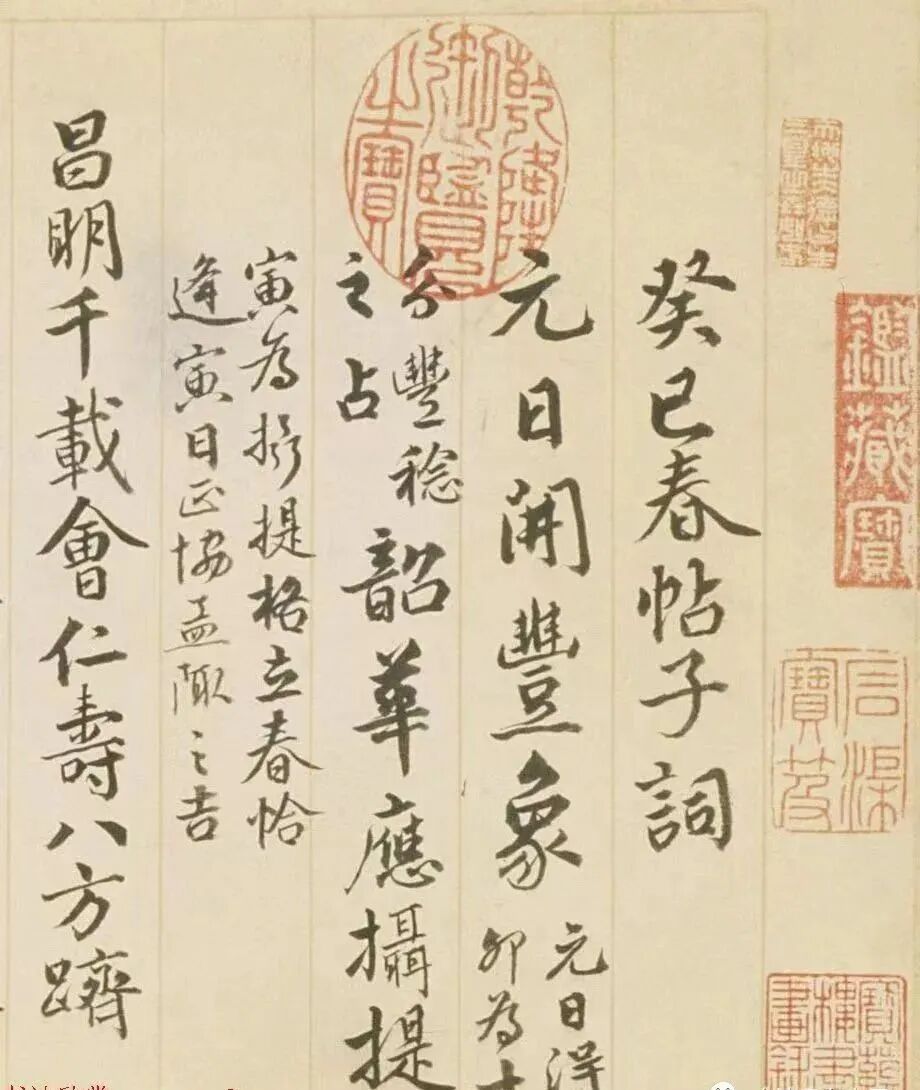 鑑藏寶
石渠寶笈
寶蘊樓書畫錄
癸巳春帖子詞
乾隆御覽之寶
元日開豐象
元日得
卯為十
分豐稔
之占
韶華應攝提
寅為攝提格立春恰
逢寅日正協孟陬之吉
昌明千載會仁壽八方躋